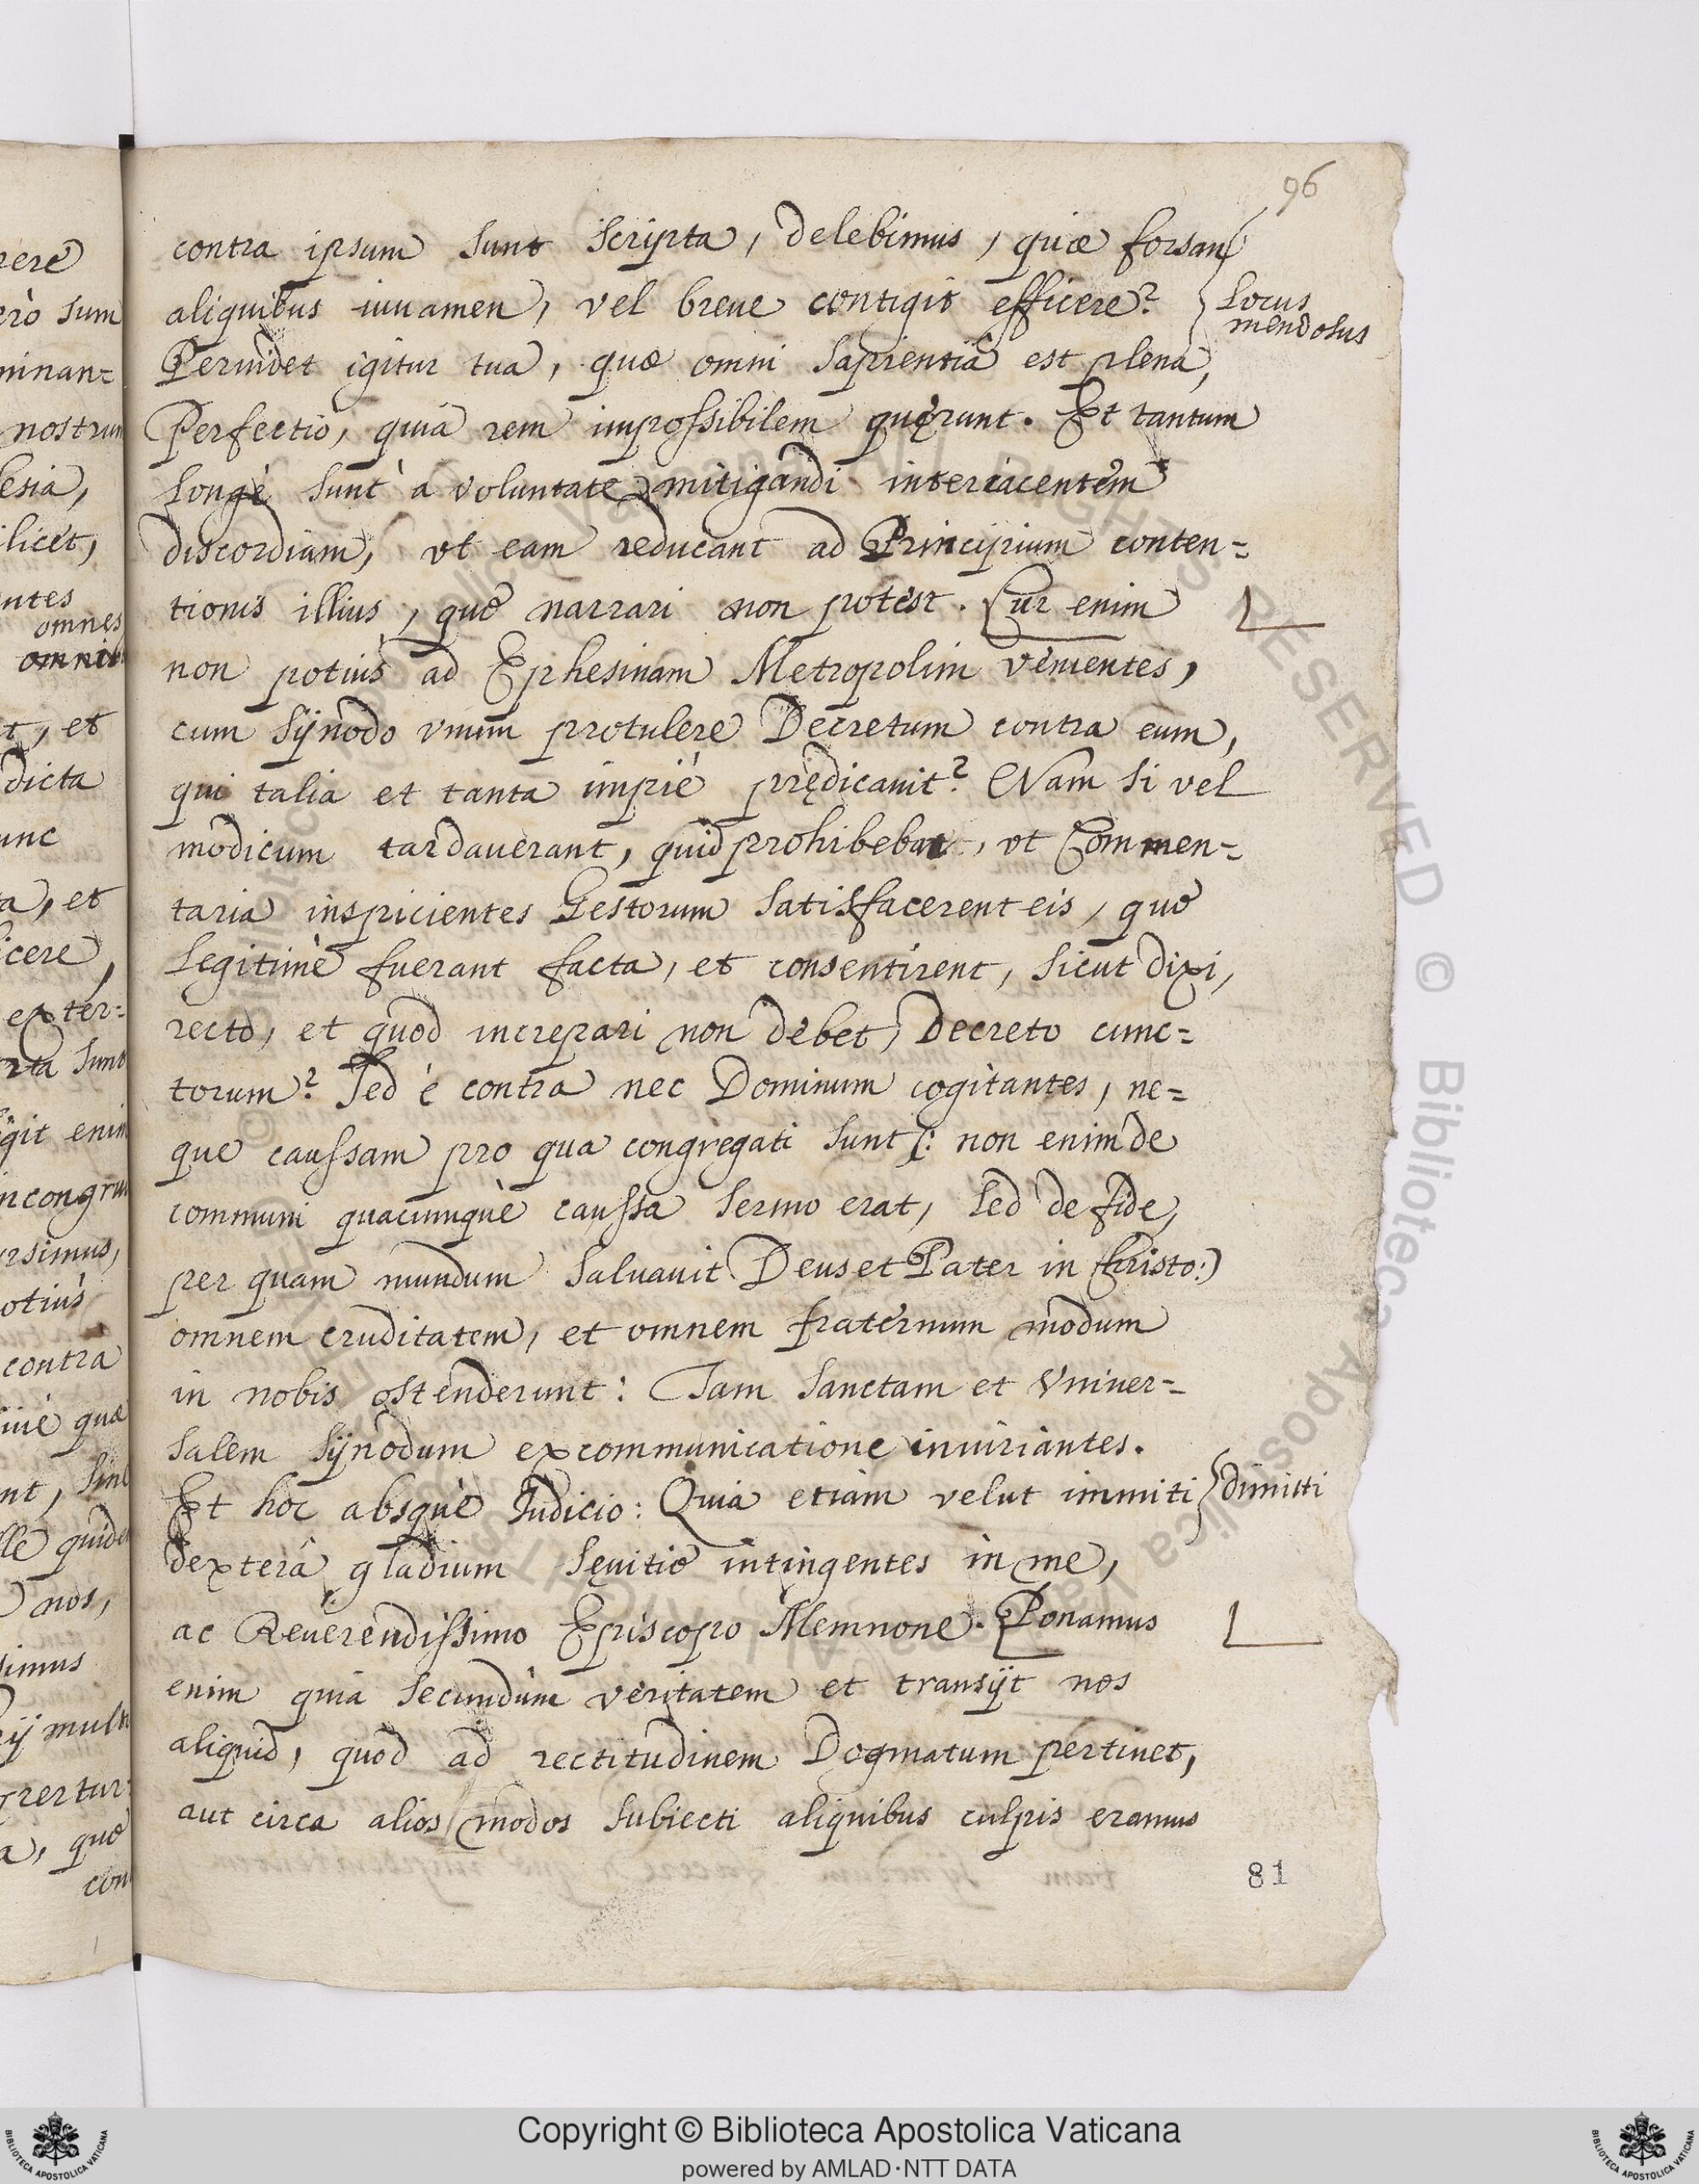 96
contra ipsum sunt scripta, delebimus, quæ forsan
aliquibus iuuamen, vel breue contigit efficere?
Locus
mendosus
Peruidet igitur tua, quæ omni sapientiâ est plena,
Perfectio, quia rem impossibilem quęrunt. Et tantum
longè sunt à voluntate mitigandi interiacentem
discordiam, vt eam reducant ad Principium conten=
tionis illius, quę narrari non potest. Cur enim
non potius ad Ephesinam Metropolim venientes,
cum Sÿnodo vnum protulere Decretum contra eum,
qui talia et tanta impiè prędicauit? Nam si vel
modicum tardauerant, quid prohibebat, vt Commen=
taria inspicientes Gestorum satisfacerent eis, quę
legitimè fuerant facta, et consentirent, sicut dixi,
recto, et quod increpari non debet, Decreto cunc=
torum? Sed è contra nec Dominum cogitantes, ne=
que caussam pro qua congregati sunt (: non enim de
communi quacumque caussa sermo erat, sed de fide,
per quam mundum saluauit Deus et Pater in Christo:)
omnem cruditatem, et omnem fraternum modum
in nobis ostenderunt: Tam sanctam et Vniuer=
salem Sÿnodum excommunicatione iniuriantes.
Et hoc absque Iudicio: Quia etiam velut immiti
dimitti
dexterâ gladium sęuitię intingentes in me,
ac Reuerendissimo Episcopo Memnone. Ponamus
enim quia secundùm veritatem et transijt nos
aliquid, quod ad rectitudinem Dogmatum pertinet,
aut circa alios modos subiecti aliquibus culpis eramus
81
rere
erò sum
minan=
nostrum
lesia,
ilicet,
antes
omnes
t, et
dicta
unc
ta, et
icere,
exter=
git enim
incongru
otius
contra
quæ
nt, sine
nos,
simus
mult
a, quę
con
Copyright © Biblioteca Apostolica Vaticana
powered by AMLAD·NTT DATA